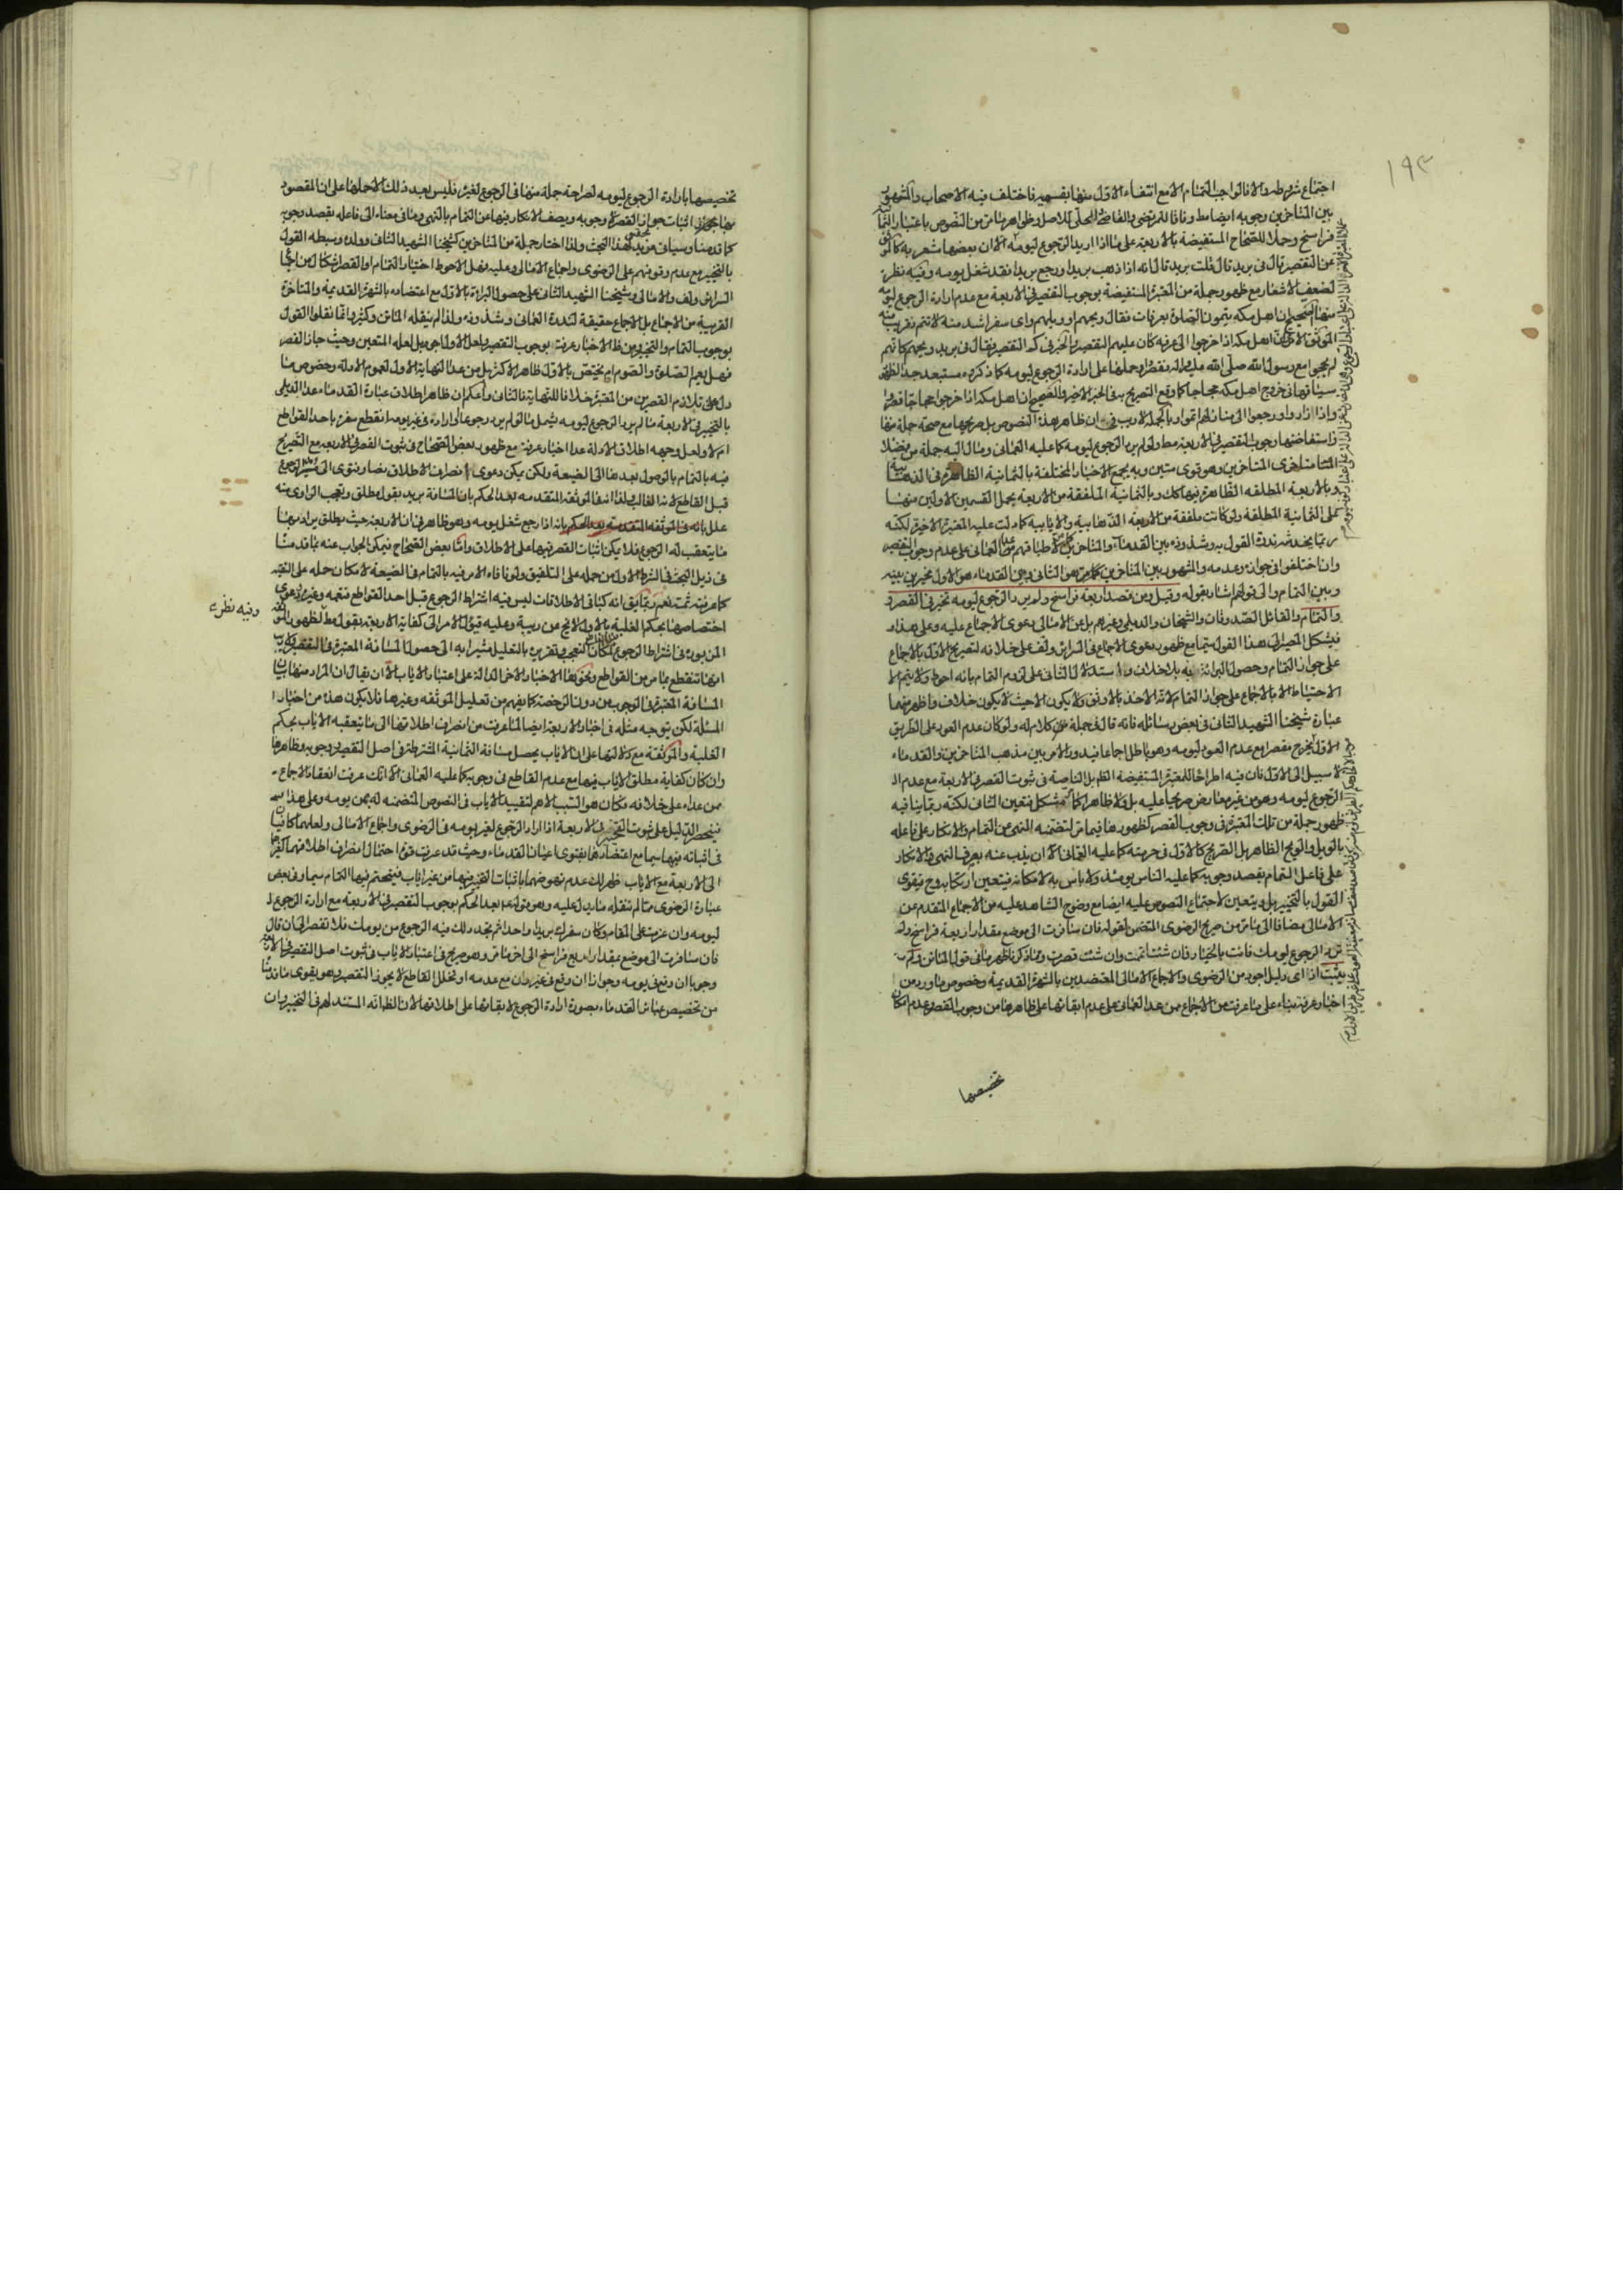 ١٩٣
اجتماع شروطه والا فالواجب التمام الا مع انتفاء الاول منها بقسميه فاختلف فيه الاصحاب والمشهور
بين المتاخرين وجوبه ايضا وفاقا للمرتضى والفاضل الحلى للاصل وظواهر ما مر من النصوص باعتبار
فراسخ وحملا للصحاح المستفيضة بالاربعة على ما اذا اريد الرجوع ليومه الا ان بعضها مشعر به
عن التقصير قال فى بريد قال قلت بريد قال انه اذا ذهب بريدا ورجع بريدا فقد شغل يومه وفيه نظر
لضعف الاشعار مع ظهور جملة من المعتبرة المستفيضة بوجوب التقصير فى الاربعة مع عدم ارادة الرجوع ليومه
منها الصحيح ان اهل مكه يتمون الصلوة بعرفات فقال ويحهم او ويلهم واى سفر اشد منه لا تتم
الموثق اهل مكه اذا خرجوا الى عرفه كان عليهم التقصير والخبر فى كم التقصير فقال فى بريد ويحهم كانهم
لم يحجوا مع رسول الله صلى الله عليه واله فقصروا وحملها على ارادة الرجوع ليومه كما ذكروه مستبعد جدا
سيما فى خروج اهل مكه حجاجا كما وقع التصريح به فى الخبر الاخير والصحيح ان اهل مكه اذا خرجوا حجاجا قصروا
واذا زاروا ورجعوا الى منازلهم اتموا وبالجملة لا ريب فى ان ظاهر هذه النصوص بل صريحها مع صحة جملة منها
واستفاضتها وجوب التقصير فى الاربعة مط ولو لم يرد الرجوع ليومه كما عليه العمانى ومال اليه جملة من فضلاء
متاخرى المتاخرين وهو قوى متين وبه يجمع الاخبار المختلفة بالثمانية الظاهرة فى الذهابية
وبالاربعة المطلقه الظاهرة فيها كك وبالثمانية الملفقة من الاربعة بحمل القسمين الاولين منها
على الثمانية المطلقة ولو كانت ملفقة من الاربعة الذهابية والايابية كما دلت عليه المعتبرة الاخيرة لكنه
ربما يخدشه ندرة القول به وشذوذه بين القدماء والمتاخرين لاطباقهم عدا العمانى على عدم وجوب التقصير
وان اختلفوا فى جوازه وعدمه والمشهور بين المتاخرين كما مر هو الثانى وبين القدماء هو الاول مخيرين بينه
وبين التمام والى قولهم اشار بقوله وقيل ومن قصد اربعة فراسخ ولم يرد الرجوع ليومه تخير فى القصر و
والتمام والقائل الصدوقان والشيخان والديلمى وغيرهم بل عن الامالى دعوى الاجماع عليه وعلى هذا
فيشكل المصير الى هذا القول سيما مع ظهور دعوى الاجماع فى السرائر ولف على خلافه لتصريح الاول بالاجماع
على جواز التمام وحصول البراءة به بلا خلاف واستدلال الثانى على لزوم التمام بانه احوط ولا يتم الا
الاحتياط الا بالاجماع على جواز التمام لانه الاخذ بالاوثق ولا يكون الا حيث لا يكون خلاف واظهر منهما
عبارة شيخنا الشهيد الثانى فى بعض رسائله فانه قال فى جملة كلام له ولو كان عدم العود على الطريق
الاول يخرج مقصرا مع عدم العود ليومه وهو باطل اجماعا فيدور الامر بين مذهب المتاخرين والقدماء
لا سبيل الى الاول فان فيه اطراحا للمعتبرة المستفيضة الظاهرة بل الناصة فى ثبوت القصر فى الاربعة مع عدم
الرجوع ليومه وهو من غير معارض صريحا عليه بل ولا ظاهرا كما مر مشكل فتعين الثانى لكنه ربما ينافيه
ظهور جملة من تلك المعتبرة فى وجوب القصر كظهورها فيما مر لتضمنه النهى عن التمام والانكار على فاعله
بالويل والويح الظاهر بل الصريح كالاول فى حرمته كما عليه العمانى الا ان يذب عنه بصرف النهى والانكار
على فاعل التمام بقصد وجوبه كما عليه الناس يومئذ ولا باس به لامكانه فيتعين ارتكابه وح فيقوى
القول بالتخيير بل ويتعين لاجتماع النصوص عليه ايضا مع وضوح الشاهد عليه من الاجماع المتقدم عن
الامالى مضافا الى ما مر من صريح الرضوى المتضمن لقوله فان سافرت الى موضع مقدار اربعة فراسخ ولم
ترد الرجوع ليومك فانت بالخيار فان شئت اتممت وان شئت قصرت ومما ذكرنا ظهر ما فى قول الماتن ولم
يثبت اذ اى دليل اجود من الرضوى والاجماع الامالى المعتضدين بالشهرة القديمة وخصوص ما ورد من
اخبار عرفة بناء على ما عرفت من الاجماع ممن عدا العمانى على عدم ابقائها على ظاهرها من وجوب القصر وعدم امكان
تخصيصها
تخصيصها بارادة الرجوع ليومه لصراحة جملة منها فى الرجوع لغيره فليس بعد ذلك الا حملها على ان المقصود
منها مجرد اثبات جواز القصر لا وجوبه ويصرف الانكار فيها عن التمام بالنهى وما فى معناه الى فاعله بقصد وجوبه
كما قدمنا وسياتى مزيد لهذا البحث ولذا اختار جملة من المتاخرين كشيخنا الشهيد الثانى وولده وسبطه القول
بالتخيير مع عدم وقوفهم على الرضوى واجماع الامالى وعليه فهل الاحوط اختيار التمام او القصر اشكال من اجماع
السرائر ولف والامالى وشيخنا الشهيد الثانى على حصول البراءة بالاول مع اعتضاده بالشهرة القديمة والمتاخرة
القريبة من الاجماع بل الاجماع حقيقة لندرة العمانى وشذوذه ولذا لم ينقله الماتن وكثير وانما نقلوا القول
بوجوب التمام والتخيير ومن ظ الاخبار عرفت بوجوب التقصير ولعل الاول اجود بل لعله المتعين وحيث جاز القصر
فهل يعم الصلوة والصوم ام يختص بالاول ظاهر الاكثر بل من عدا النهاية الاول لعموم الادلة وخصوص ما
دل على تلازم القصرين من المعتبرة خلافا للنهاية فالثانى واعلم ان ظاهر اطلاق عبارة القدماء عدا الديلمى
بالتخيير فى الاربعة ما لم يرد الرجوع ليومه يشمل ما لو لم يرد رجوعا او اراده فى غير يومه انقطع سفره باحد القواطع
ام لا ولعل وجهه اطلاق الادلة عدا اخبار عرفة مع ظهور بعض الصحاح فى ثبوت القصر فى الاربعة مع التصريح
فيه بالتمام بالوصول بعدها الى الضيعة ولكن يمكن دعوى انصراف الاطلاق نصا وفتوى الى
قبل القاطع لانه الغالب ولذا فى الموثقة المتقدمه بعد الحكم بان المسافة بريد بقول مطلق وتعجب الراوى منه
علل بانه اذا رجع شغل يومه وهو ظاهر فى ان الاربعة حيث يطلق يراد منها
ما يتعقب له الرجوع فلا يمكن اثبات القصر فيها على الاطلاق واما بعض الصحاح فيمكن الجواب عنه بما قدمنا
فى ذيل البحث فى الشرط الاول من حمله على التلفيق ولا ينافاه الامر فيه بالتمام فى الضيعة لامكان حمله على التقيه
كما عرفته ثمت نعم ربما يق انه كباقى الاطلاقات ليس فيه اشتراط الرجوع قبل احد القواطع فتعمه وغيره ودعوى
اختصاصها بحكم الغلبة بالاول لا يخ عن ريبة وعليه فيؤل الامر الى كفاية الاربعة بقول مط لظهور
المزبورة فى اشتراط الرجوع لمكان التعجب وتقريره بالتعليل مشيرا به الى حصول المسافة المعتبرة فى التقصير
انها تنقطع بما مر من القواطع ونحوها الاخبار الاخر الدالة على اعتبار الاياب الا ان يقال ان المراد منها بيان
المسافة المعتبرة فى الوجوب من دون الرخصة كما يفهم من تعليل الموثقه وغيرها فلا يكون هذه من اخبار
المسئلة لكن يتوجه مثله فى اخبار الاربعة ايضا لما عرفت من انصراف اطلاقها الى ما يتعقبه الاياب بحكم
الغلبة والموثقة مع دلالتها على ان الاياب يحصل مسافة الثمانية المشترطة فى اصل التقصير ووجوبه وظاهرها
وان كان كفاية مطلق الاياب فيها مع عدم القاطع فى وجوبه كما عليه العمانى الا انك عرفت انعقاد الاجماع
ممن عداه على خلافه فكان هو السبب الاهم لتقييد الاياب فى النصوص المتضمنه له بمن يومه وعلى هذا
فينحصر الدليل على ثبوت التخيير فى الاربعة اذا اراد الرجوع لغير يومه فى الرضوى واجماع الامالى ولعلهما كافيان
فى اثباته فيها سيما مع اعتضادها بفتوى اعيان القدماء وحيث قد عرفت قوة احتمال انصراف اطلاقهما
الى الاربعة مع الاياب ظهر لك عدم نهوضهما باثبات التخيير فيها من غير اياب فيتحتم فيها التمام سيما وفى بعض
عبارة الرضوى مما لم تنقله ما يدل عليه وهو قوله بعد الحكم بوجوب التقصير فى الاربعة مع ارادة الرجوع
ليومه وان عزمت على المقام وكان سفرك بريدا واحدا ثم تجدد لك فيه الرجوع من يومك فلا تقصر الى ان قال
فان سافرت الى موضع بمقدار اربع فراسخ الى اخر ما مر وهو صريح فى اعتبار الاياب فى ثبوت اصل التقصير فى الاربعة
وجوبا ان وقع فى يومه وجوازا ان وقع فى غيره وان مع عدمه او تخلل القاطع لا يجوز التقصير وهو يقوى ما قدمنا
من تخصيص عبائر القدماء بصورة ارادة الرجوع لا بقائها على اطلاقها لان الظ انه المستند لهم فى التخيير وان
وفيه نظر